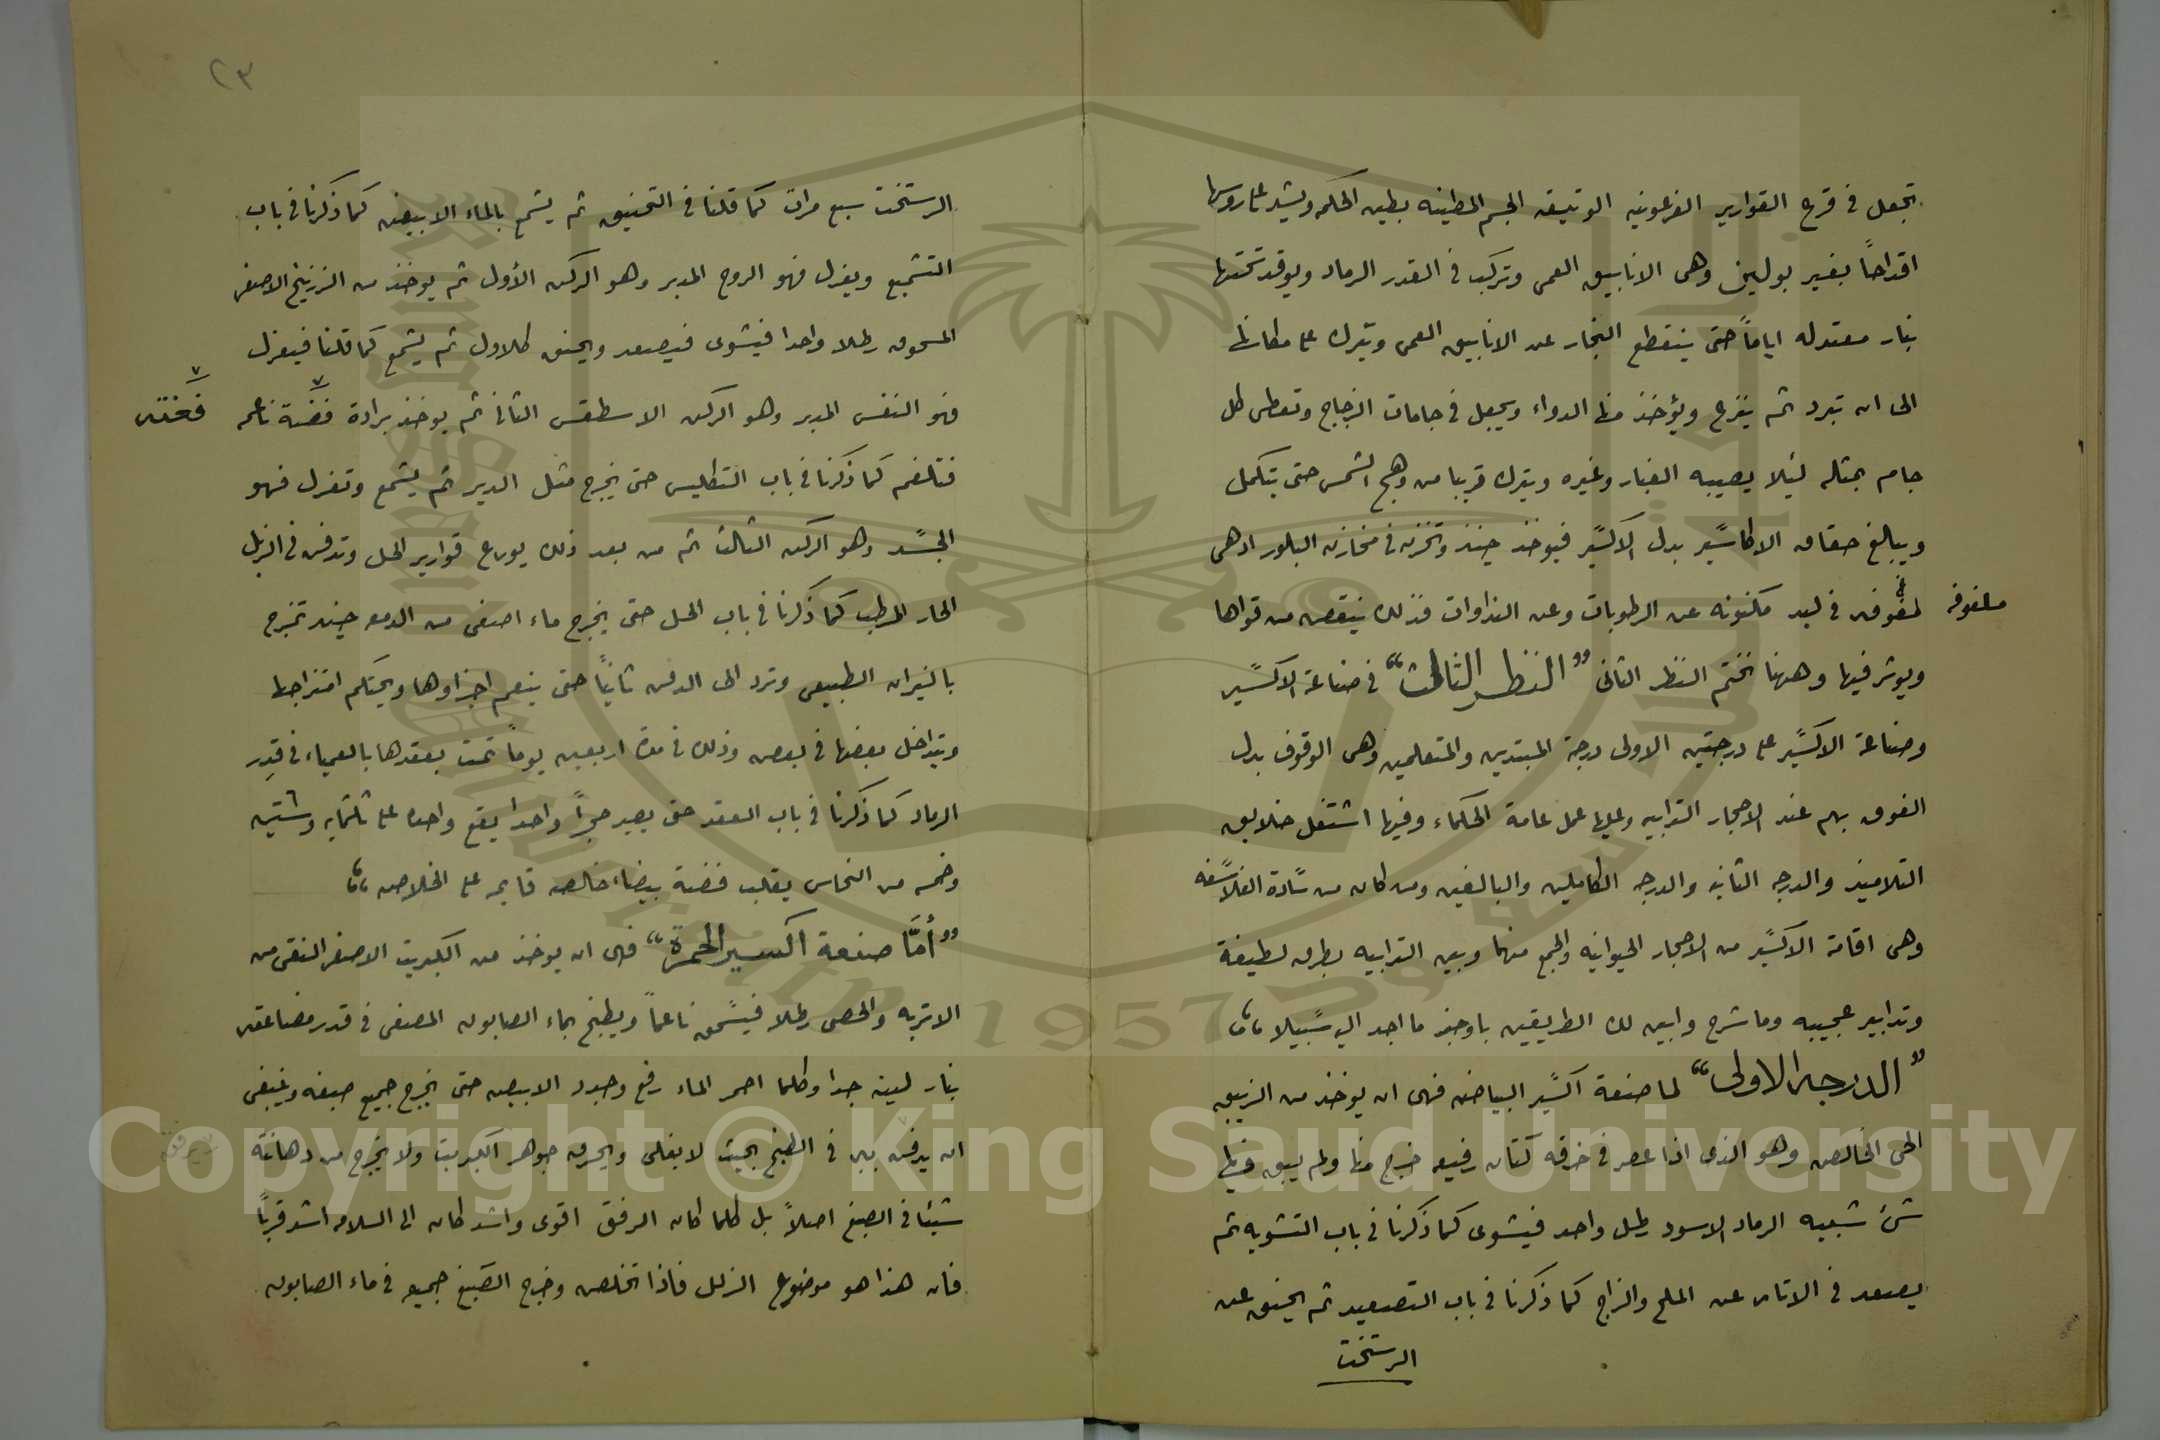 تجعل في قرع القوارير الفرعونيه الوثيقه الجسم المطينه بطين الحكمه ويشد على روسها
اقداحاً بغير بولين وهي الانابيق العمي وتركب في القدر الرماد ويوقد تحتها
بنار معتدله اياماً حتى ينقطع البخار عن الانابيق العمي ويترك على مكانها
الى ان تبرد ثم ينزع ويؤخذ منها الدواء ويجعل في جامات الزجاج وتغطى كل
جام بمثله لئلا يصيبه الغبار وغيره ويترك قريبا من وهج الشمس حتى يتكمل
ويبالغ الاكاسير بدل الاكسير فيوخذ حينئذ وتخزنه في مخازن البلور اذ هي
ملفوفه في لبد مكنونه عن الرطوبات وعن النداوات فذلك ينقص من قواها
ملفوفه
ويوثر فيها وههنا نختم النظر الثاني "النظر الثالث" في صناعة الاكسير
وصناعة الاكسير على درجتين الاولى درجة المبتدين والمتعلمين وهي الوقوف بدل
الفوق بهم عند الاحجار الترابيه وعليها عمل عامة الحكماء وفيها اشتغل خلايق
التلاميذ والدرجه الثانيه والدرجه الكاملين والبالغين ومن كان من سادة الفلاسفه
وهي اقامة الاكسير من الاحجار الحيوانيه والجمع منها وبين الترابيه بطرق لطيفة
وتدابير عجيبه وما شرح وابين لك الطريقين باوجز ما اجد الي سبيلا
"الدرجه الاولى" لما صنعة اكسير البياض فهي ان يوخذ من الزيبق
الحي الخالص وهو الذي اذا عصر في خرقه كتان رفيعه خرج منها ولم يبق فيها
شئ شبيه الرماد الاسود رطل واحد فيشوى كما ذكرنا في باب التشويه ثم
يصعد في الاثال عن الملح والزاج كما ذكرنا في باب التصعيد ثم يخنق عن
الرستخت
٢٣
الرستخت سبع مرات كما قلنا في التخنيق ثم يشمع بالماء الابيض كما ذكرنا في باب
التشميع ويعزل فهو الروح المدبر وهو الركن الأول ثم يوخذ من الزرنيخ الاصفر
المسحوق رطلا واحدا فيشوى فيصعد ويخنق كالاول ثم يشمع كما قلنا فيعزل
فهو النفس المدبر وهو الركن الاسطقس الثاني ثم يوخذ برادة فضة ناعمه
فضته
فتلغم كما ذكرنا في باب التكليس حتى يخرج مثل الدير ثم يشمع وتعزل فهو
الجسد وهو الركن الثالث ثم من بعد ذلك يودع قوارير الحل وتدفن في الزبل
الحار الرطب كما ذكرنا في باب الحل حتى يخرج ماء اصفى من الدمعه حينئذ تمزج
بالنيران الطبيعي وترد الى الدفن ثانياً حتى ينعم اجزاوها ويحكم امتزاجها
ويتداخل بعضها في بعض وذلك في مدة اربعين يوماً تمت بعقدها بالعمياء في قِدر
الرماد كما ذكرنا في باب العقد حتى يصير حجراً واحدا يقع واحده على ثلثمايه وستين
وخمسه من النحاس يقلب فضة بيضاء خالصه قايمه على الخلاص
"أمّا صنعة اكسير الحمرة" فهي ان يوخذ من الكبريت الاصفر النقي من
الاتربه والحصى رطلا فيسحق ناعماً ويطبخ بماء الصابون المصفى في قدر مضاعفه
بنار لينه جدا وكلما احمر الماء رفع وجدد الابيض حتى يخرج جميع صبغه وينبغي
ان يرفق به في الطبخ بحيث لا يغلي ويحرق جوهر الكبريت ولا يخرج من دهانته
شيئا في الصبغ اصلاً بل كلما كان الرفق اقوى واشد كان الى السلامه اشد قرباً
فان هذا هو موضوع الزلل فاذا تخلص وخرج الصبغ جميعه في ماء الصابون
1957
Copyright © King Saud University